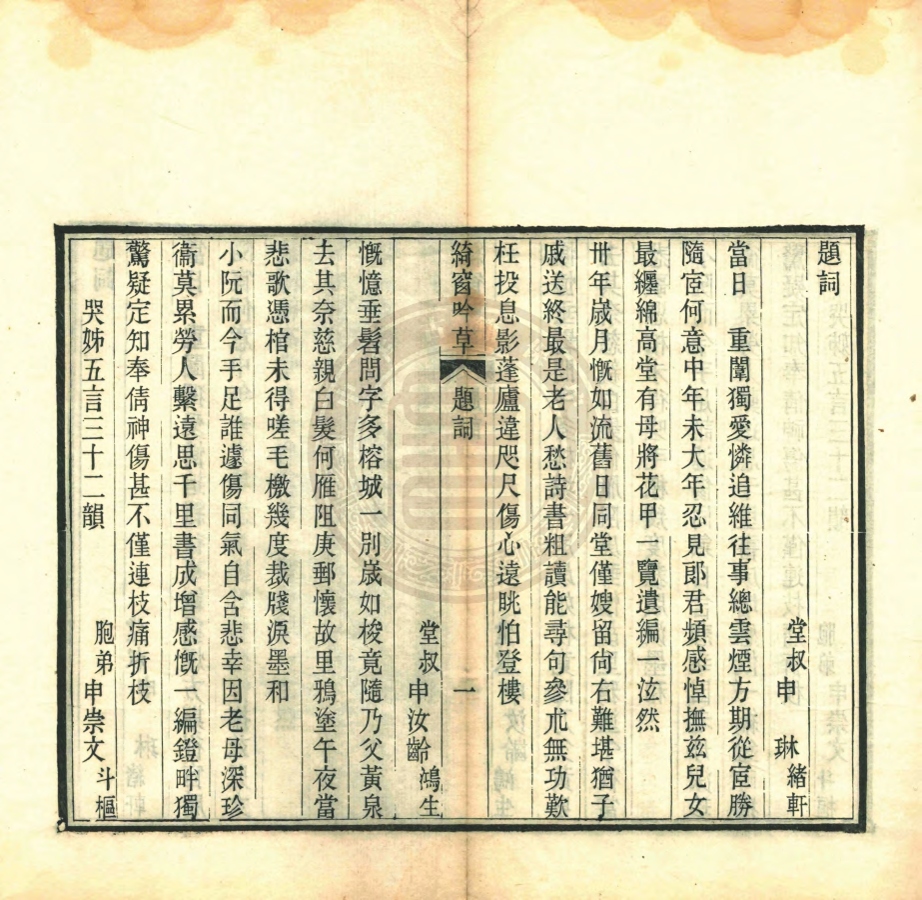 題詞
堂叔申　琳緒軒
當日　重闈獨愛憐追維往事總雲煙方期從宦勝
隨宦何意中年未大年忍見郎君頻感悼撫兹兒女
最纏綿高堂有母將花甲一覽遺編一泫然
卅年歲月慨如流舊日同堂僅嫂留尙右難堪猶子
戚送終最是老人愁詩書粗讀能尋句參朮無功歎
枉投息影蓬廬違咫尺傷心遠眺怕登樓
綺窗吟草　題詞　一
堂叔申汝齡鴻生
慨憶垂髫問字多榕城一別歲如梭竟隨乃父黃泉
去其奈慈親白髮何雁阻庚郵懷故里鴉塗午夜當
悲歌憑棺未得嗟毛檄幾度裁牋淚墨和
小阮而今手足誰遽傷同氣自含悲幸因老母深珍
衞莫累勞人繫遠思千里書成增感慨一編鐙畔獨
驚疑定知奉倩神傷甚不僅連枝痛折枝
哭姊五言三十二韻　胞弟申崇文斗樞